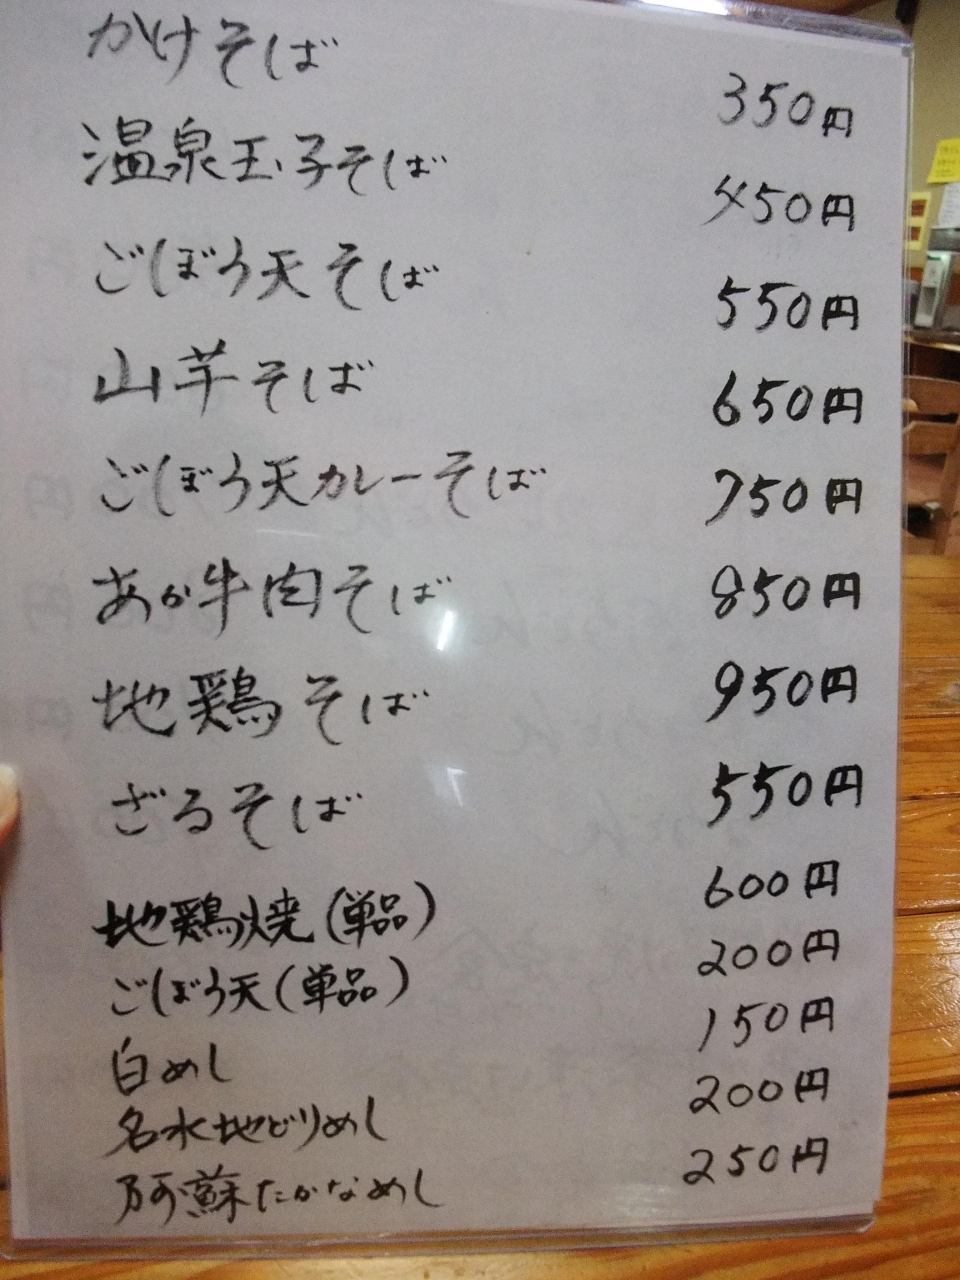 かけそば 350円
温泉玉子そば 450円
ごぼう天そば 550円
山芋そば 650円
ごぼう天カレーそば 750円
あか牛肉そば 850円
地鶏そば 950円
ざるそば 550円
地鶏焼(単品) 600円
ごぼう天(単品) 200円
白めし 150円
名水地どりめし 200円
阿蘇たかなめし 250円